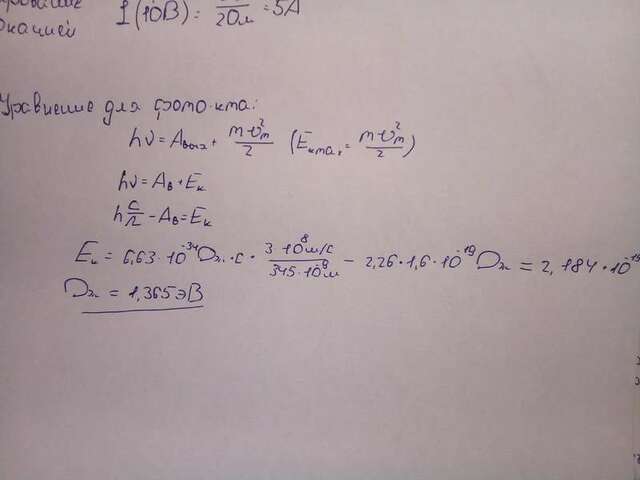 I(10В) = /20м = 5А
Уравнение для фото-кта:
hν = Aвых + mυm²/2 (Eкmax = mυm²/2)
hν = Aв + Eк
h c/λ - Aв = Eк
Eк = 6,63·10⁻³⁴ Dж·с · 3·10⁸ м/с / 345·10⁻⁹ м - 2,26·1,6·10⁻¹⁹ Dж = 2,184·10⁻¹⁹
Dж = 1,365 эВ